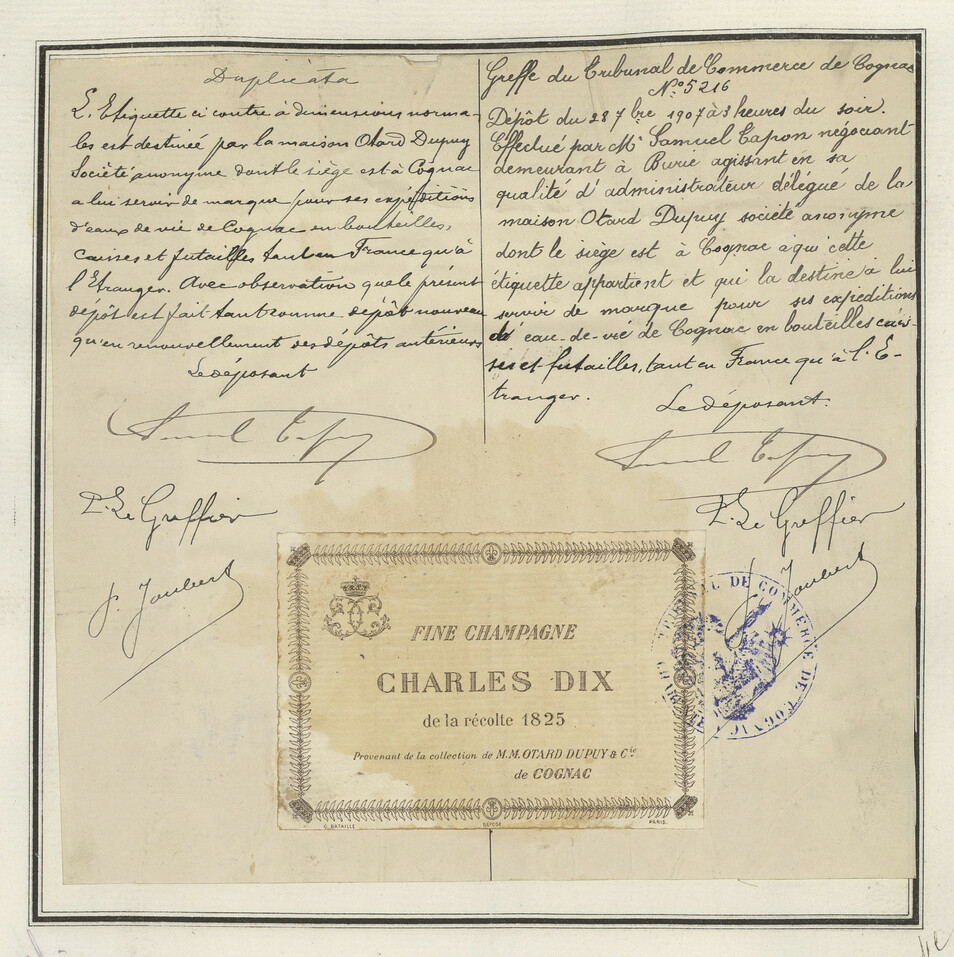 Duplicata
L'Etiquette ci contre à dimensions norma-
les est destinée par la maison Otard Dupuy
Société anonyme dont le siège est à Cognac
a lui servir de marque pour ses expéditions
d'eaux de vie de Cognac en bouteilles,
caisses et futailles tant en France qu'à
l'Etranger. Avec observation que le présent
dépôt est fait tant comme dépôt nouveau
qu'en renouvellement des dépôts antérieurs
Le déposant
P. Le Greffier
J. Joubert
Greffe du Tribunal de Commerce de Cognac
N° 5216
Dépôt du 28 7bre 1907 à 3 heures du soir.
Effectué par Mr Samuel Tapon négociant
demeurant à Burie agissant en sa
qualité d'administrateur délégué de la
maison Otard Dupuy société anonyme
dont le siège est à Cognac à qui cette
étiquette appartient et qui la destine à lui
servir de marque pour ses expéditions
d'eau-de-vie de Cognac en bouteilles cais-
ses et futailles, tant en France qu'à l'E-
tranger.
Le déposant.
P. Le Greffier
J. Joubert
FINE CHAMPAGNE
CHARLES DIX
de la récolte 1825
Provenant de la collection de M.M. OTARD DUPUY & Cie
de COGNAC
G. BATAILLE
DÉPOSÉ
PARIS.
TRIBUNAL DE COMMERCE DE COGNAC